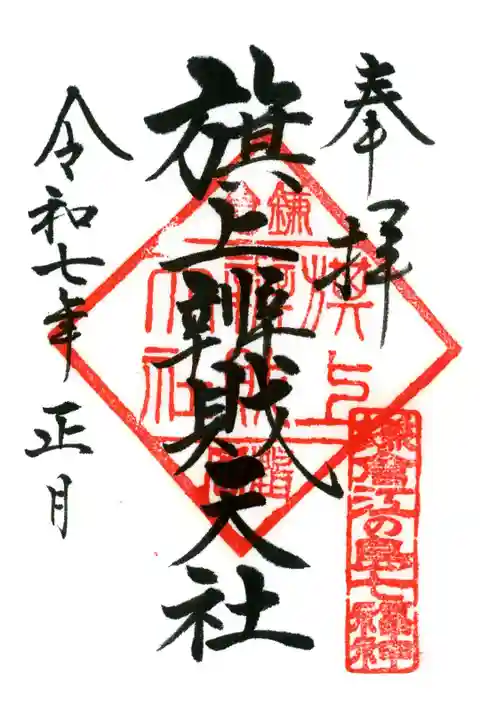 奉拝
旗上辨戝天社
令和七年正月
鎌倉
旗上
辨財
天社
鎌倉江の島七福神